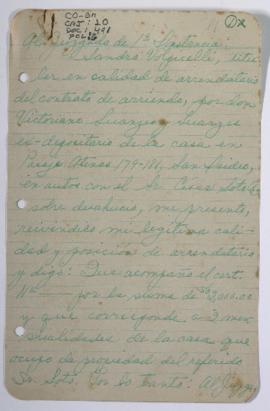 CO-BN
CAJ: 20
DOC: 491
FOL: 
Al Juzgado de 1ª Instancia:
Sandro Volpicelli, 
en calidad de arrendatario
del contrato de arriendo, por don
Victoriano Suanzes y Suanzes
ex-depositario de la casa en
Pasaje Atenas 179-181, San Isidro,
en autos con el Sr. César Soto
sobre desahucio, me presento,
reivindico mi legítima cali-
dad y posición de arrendatario
y digo: Que acompaño el cert.
Nº por la suma de
y que corresponde a 3 men-
sualidades de la casa que
ocupo de propiedad del referido
Sr. Soto. Por lo tanto: Al Juzga